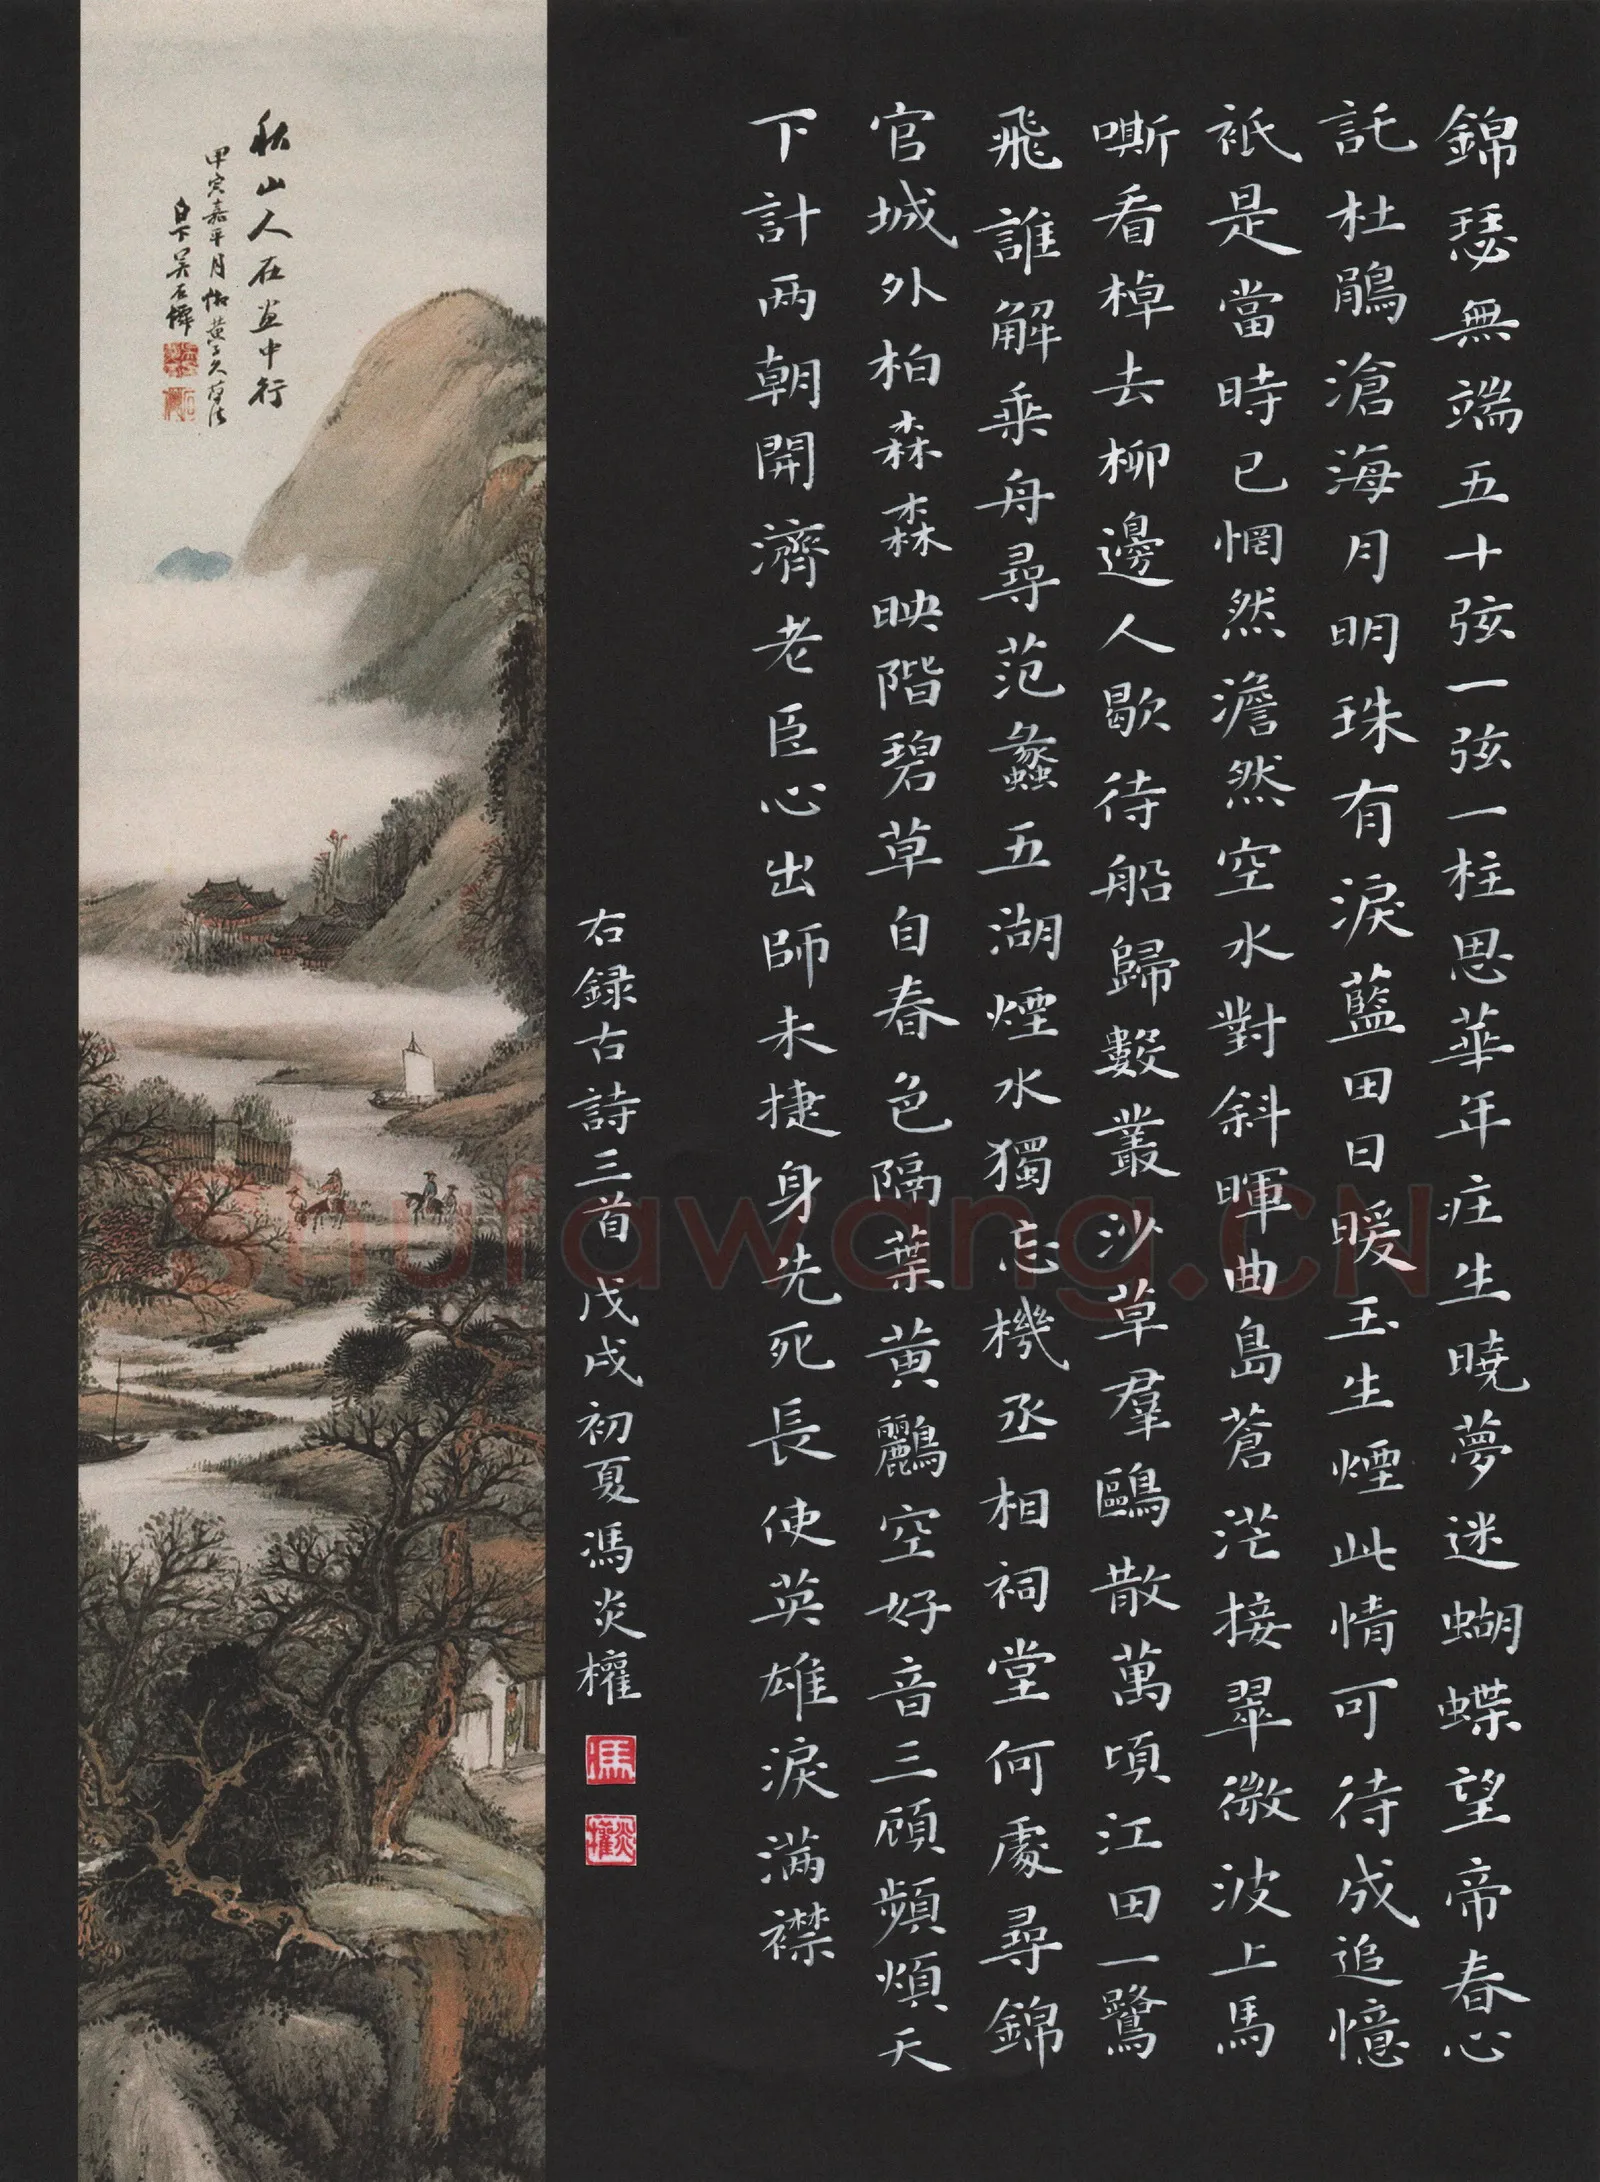 錦瑟無端五十弦一弦一柱思華年庄生曉夢迷蝴蝶望帝春心
託杜鵑滄海月明珠有淚藍田日暖玉生煙此情可待成追憶
祇是當時已惘然澹然空水對斜暉曲島蒼茫接翠微波上馬
嘶看棹去柳邊人歇待船歸數叢沙草羣鷗散萬頃江田一鷺
飛誰解乘舟尋范蠡五湖煙水獨忘機丞相祠堂何處尋錦
官城外柏森森映階碧草自春色隔葉黄鸝空好音三顧頻煩天
下計两朝開濟老臣心出師未捷身先死長使英雄淚满襟
右録古詩三首戊戌初夏馮炎權
馮
炎權
秋山人在画中行
甲寅嘉平月仿黄子久筆法
白下吴石僊
shufawang.CN